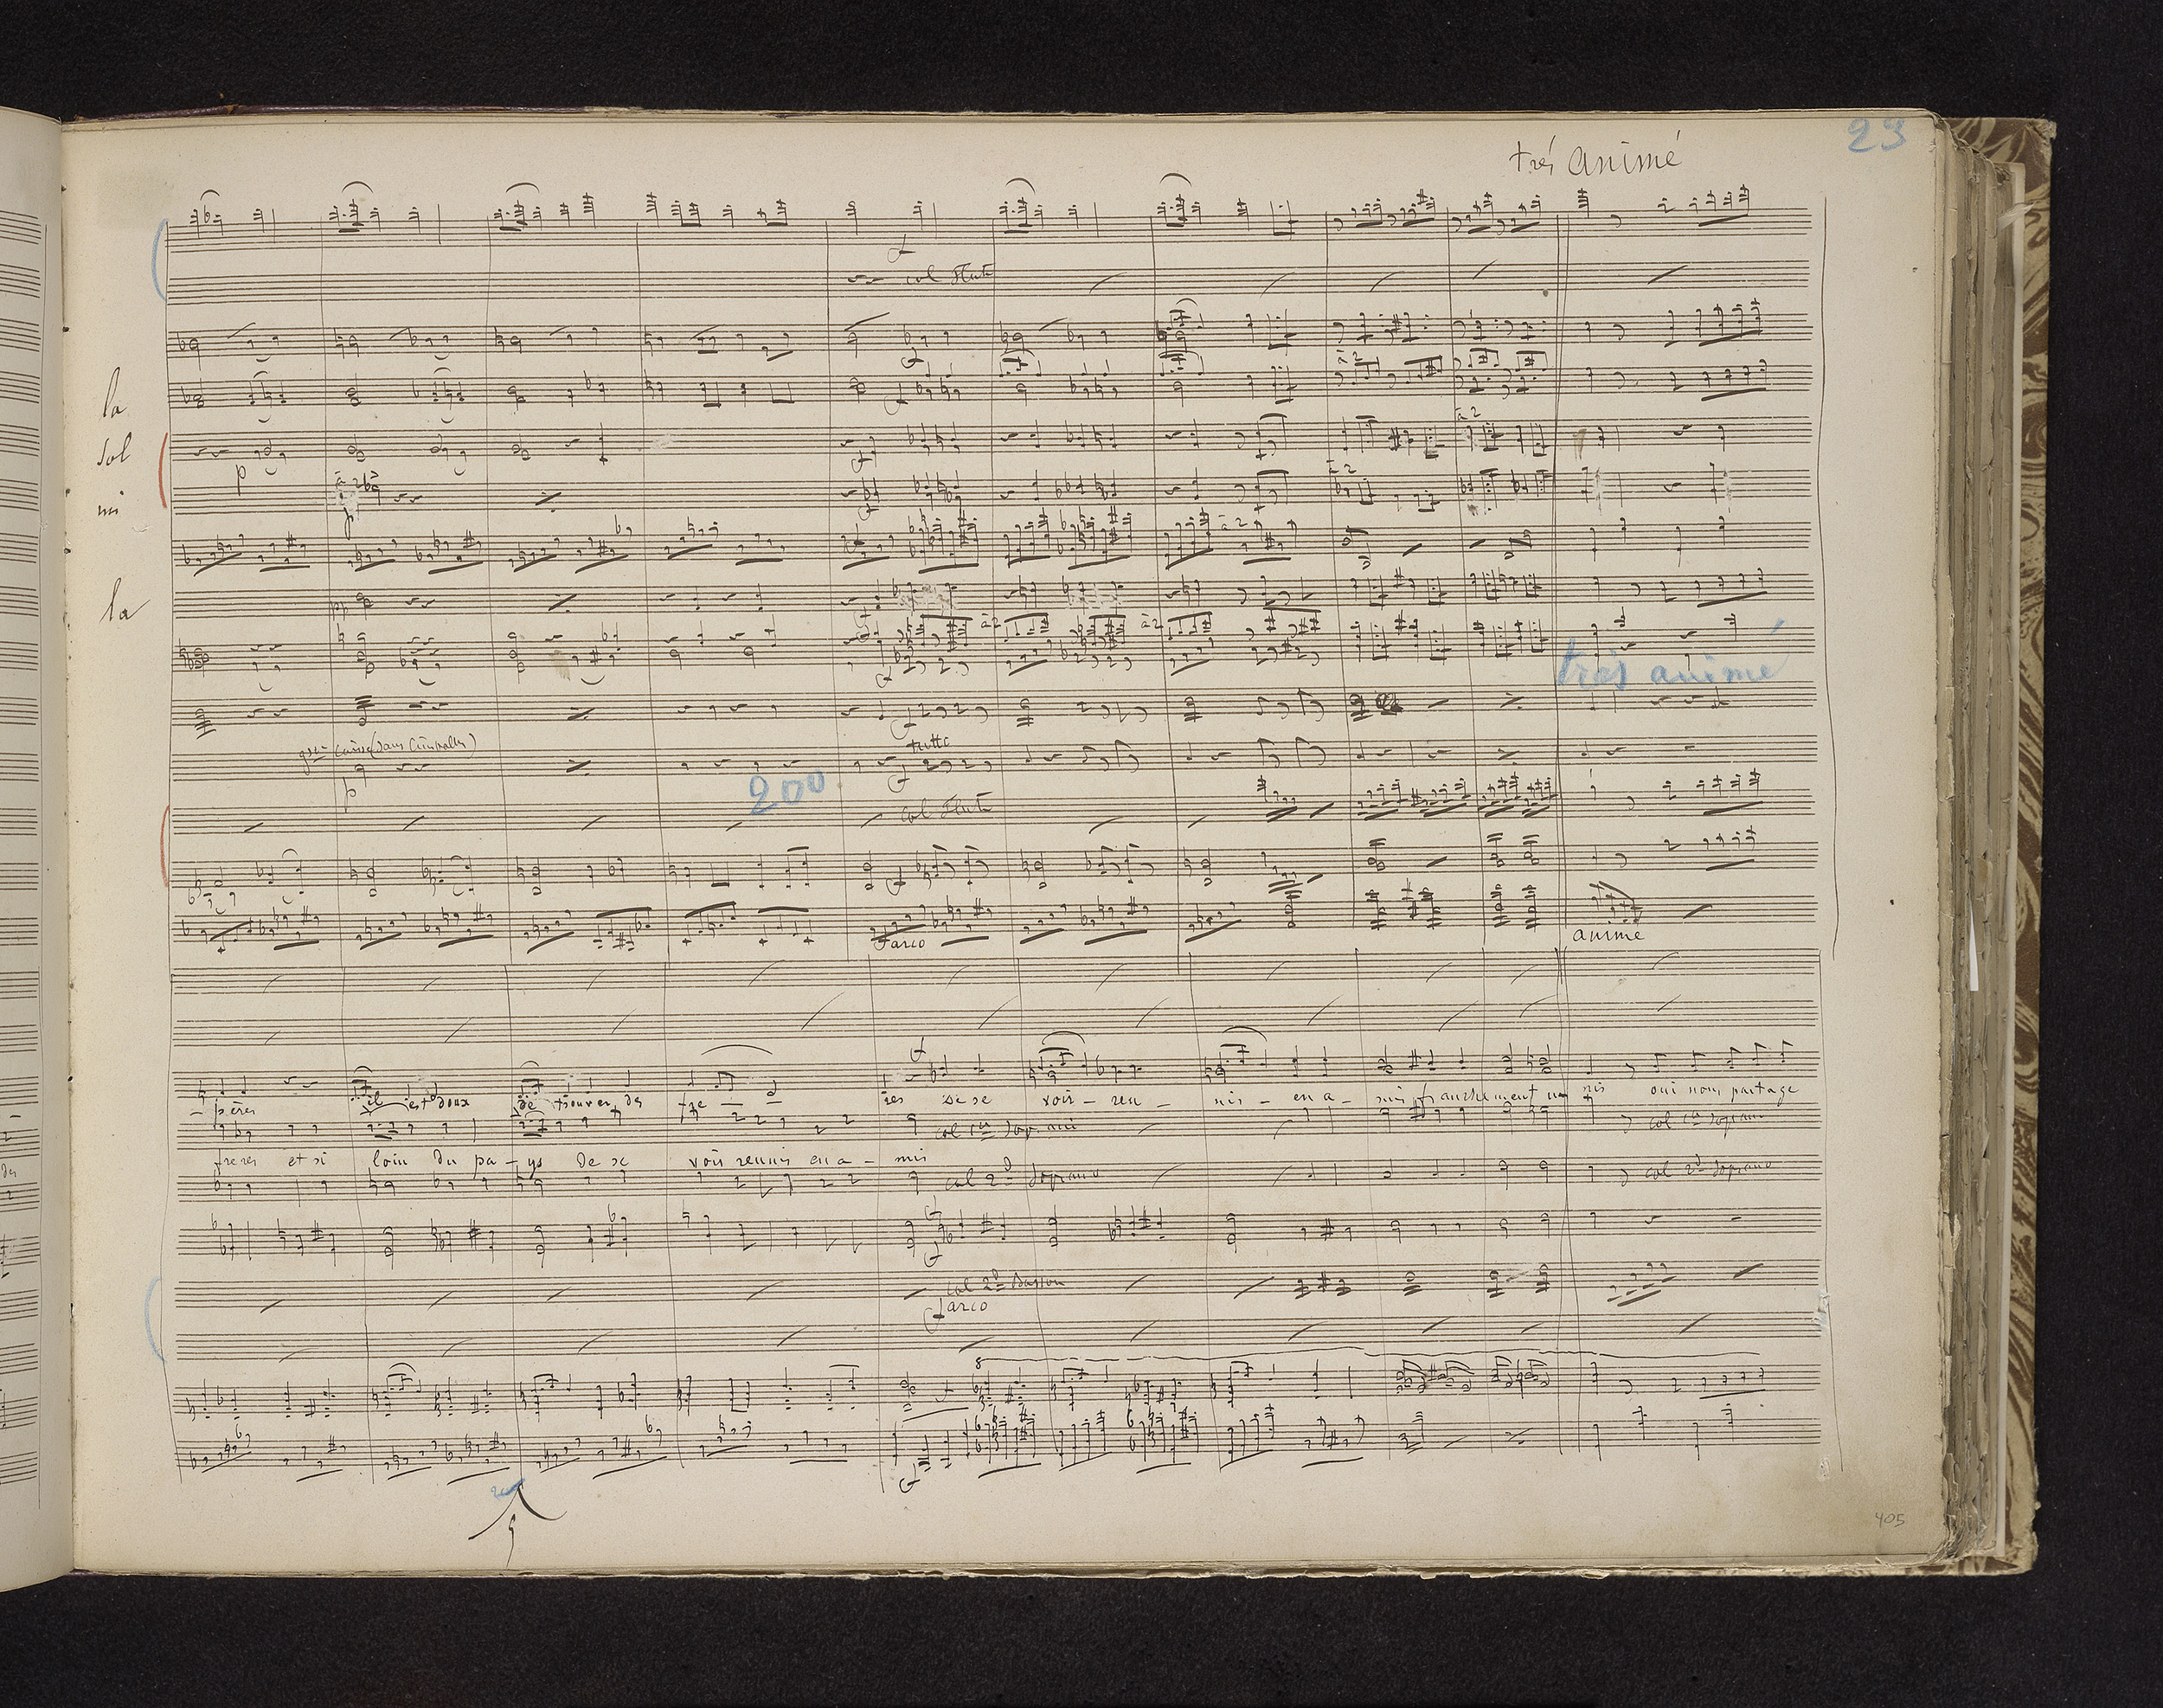 23
très animé
f
col Flute
la
à 2
f
f
sol
à 2
p
à 2
f
mi
à 2
p
f
à 2
f
pp
la
f
à 2
à 2
f
très animé
f
gsse caisse (sans Cimballes)
tutta
p
f
200
col Flute
f
f arco
animé
f
- pères il est doux de trouver des frè - res de se voir - reu - nis - en a - mis franchement u nis oui nous partage
col 1er Soprani
col 1er Soprano
freres et si loin du pa - ys de se voir reunis en a - mis
col 2d Soprano
col 2d Soprano
f
f
col 2d Basson
f arco
8
f
405